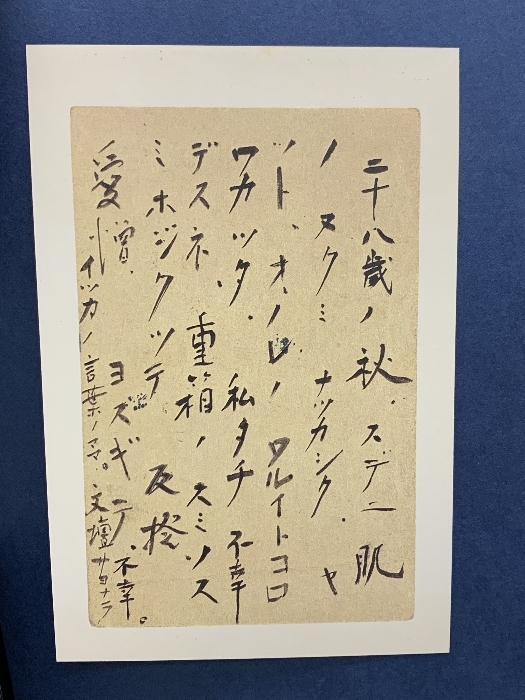 二十八歳ノ秋、スデニ肌
ノヌクミナツカシク、ヤ
ツト、オノレノワルイトコロ
ワカツタ。私タチ不幸
デスネ 重箱ノスミノス
ミホジクツテ 反撥
愛憎、ヨスギテ、不幸。
イツカノ言葉ノママ。文壇サヨナラ